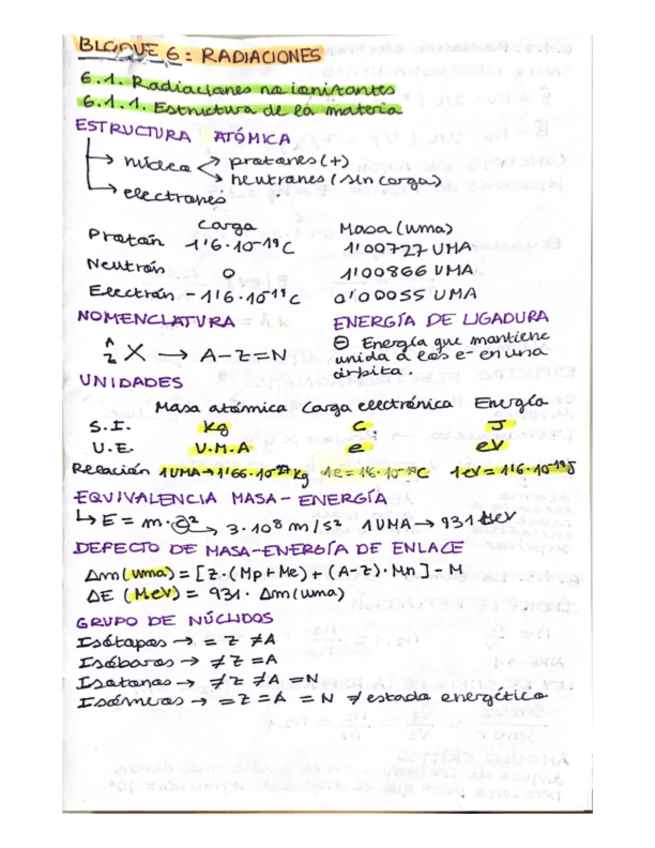 BLOQUE 6: RADIACIONES
6.1. Radiaciones no ionitantes
6.1.1. Estructura de la materia
ESTRUCTURA ATÓMICA
→ núcleo → protones (+)
→ neutrones (sin carga)
→ electrones
Carga Masa (uma)
Protón 1'6·10⁻¹⁹C 1'00727 UMA
Neutrón 0 1'00866 UMA
Electrón -1'6·10⁻¹⁹C 0'00055 UMA
NOMENCLATURA ENERGÍA DE LIGADURA
ᴬ_Z X → A-Z=N ⊖ Energía que mantiene
unida a los e- en una
órbita.
UNIDADES
Masa atómica Carga electrónica Energía
S.I. kg C. J
U.E. U.M.A e eV
Relación 1UMA→1'66·10⁻²⁷kg 1e=1'6·10⁻¹⁹C 1eV=1'6·10⁻¹⁹J
EQUIVALENCIA MASA-ENERGÍA
↳ E = m·c² → 3·10⁸ m/s² 1UMA → 931 MeV
DEFECTO DE MASA-ENERGÍA DE ENLACE
Δm (uma) = [Z·(Mp+Me) + (A-Z)·Mn] - M
ΔE (MeV) = 931· Δm (uma)
GRUPO DE NÚCLIDOS
Isótopos → = Z ≠ A
Isóbaros → ≠ Z = A
Isotonos → ≠ Z ≠ A = N
Isómeros → = Z = A = N ≠ estado energético